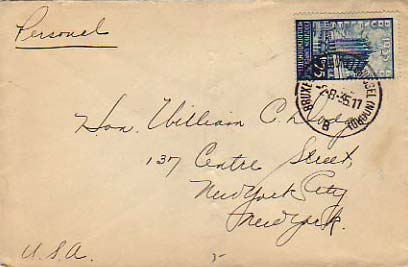 Personel
BRUXELLES (NORD)
2-8-35.17
B
Hon. William C. Dodge
137 Centre Street,
New York City
New York.
U.S.A.